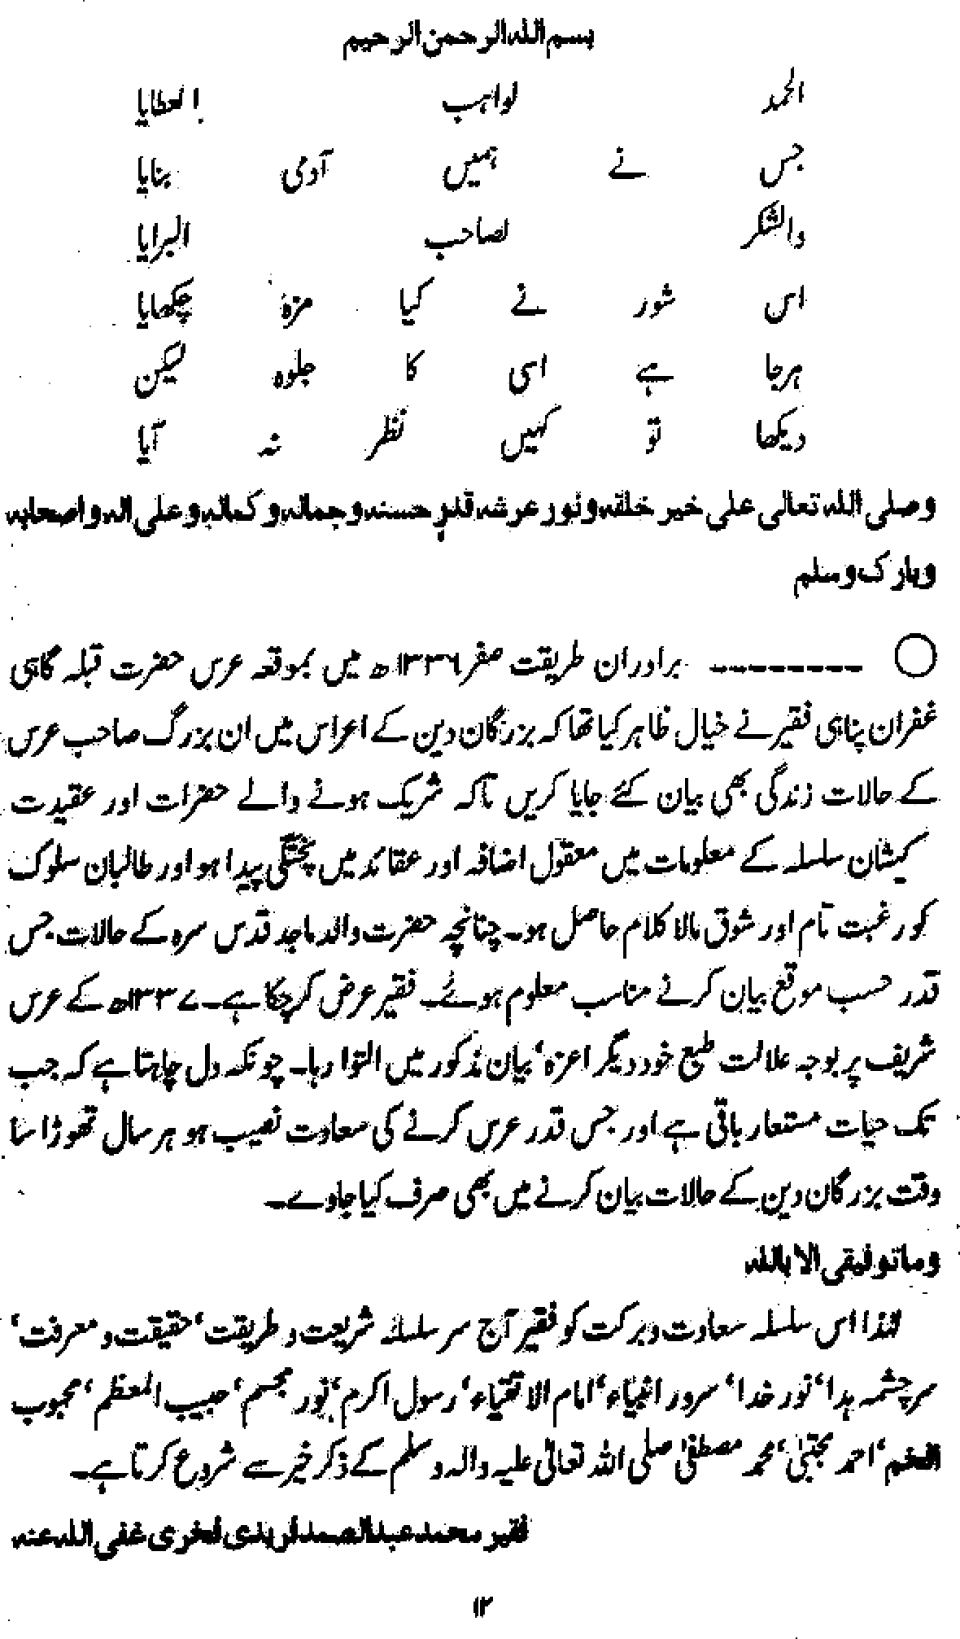 بسم اللہ الرحمن الرحیم
الحمد لواہب العطایا
جس نے ہمیں آدمی بنایا
والشکر لصاحب البرایا
اس شور نے کیا مزہ چکھایا
ہرجا ہے اسی کا جلوہ لیکن
دیکھا تو کہیں نظر نہ آیا
وصلی اللہ تعالی علی خیر خلقہ ونور عرشہ قدر حسنہ وجمالہ وکمالہ وعلی الہ واصحابہ
وبارک وسلم
○ --------- برادران طریقت صفر ۱۳۳۶ھ میں بموقعہ عرس حضرت قبلہ گاہی
غفران پناہی فقیر نے خیال ظاہر کیا تھا کہ بزرگان دین کے اعراس میں ان بزرگ صاحب عرس
کے حالات زندگی بھی بیان کئے جایا کریں تاکہ شریک ہونے والے حضرات اور عقیدت
کیشان سلسلہ کے معلومات میں معقول اضافہ اور عقائد میں پختگی پیدا ہو اور طالبان سلوک
کو رغبت تام اور شوق مالا کلام حاصل ہو۔ چنانچہ حضرت والد ماجد قدس سرہ کے حالات جس
قدر حسب موقع بیان کرنے مناسب معلوم ہوئے۔ فقیر عرض کرچکا ہے۔ ۱۳۳۷ھ کے عرس
شریف پر بوجہ علالت طبع خود دیگر اعزہ‘ بیان مذکور میں التوا رہا۔ چونکہ دل چاہتا ہے کہ جب
تک حیات مستعار باقی ہے اور جس قدر عرس کرنے کی سعادت نصیب ہو ہر سال تھوڑا سا
وقت بزرگان دین کے حالات بیان کرنے میں بھی صرف کیا جاوے۔
وما توفیقی الا باللہ
لہٰذا اس سلسلہ سعادت و برکت کو فقیر آج سر سلسلہ شریعت و طریقت‘ حقیقت و معرفت‘
سرچشمہ ہدا‘ نور خدا‘ سرور انبیاء‘ امام الاتقیاء‘ رسول اکرم‘ نور مجسم‘ حبیب المعظم‘ محبوب
‘ احمد مجتبیٰ‘ محمد مصطفیٰ صلی اللہ تعالیٰ علیہ والہ وسلم کے ذکر خیر سے شروع کرتا ہے۔
فقیر محمد عبدالصمد فریدی فخری غفی اللہ عنہ
۱۲